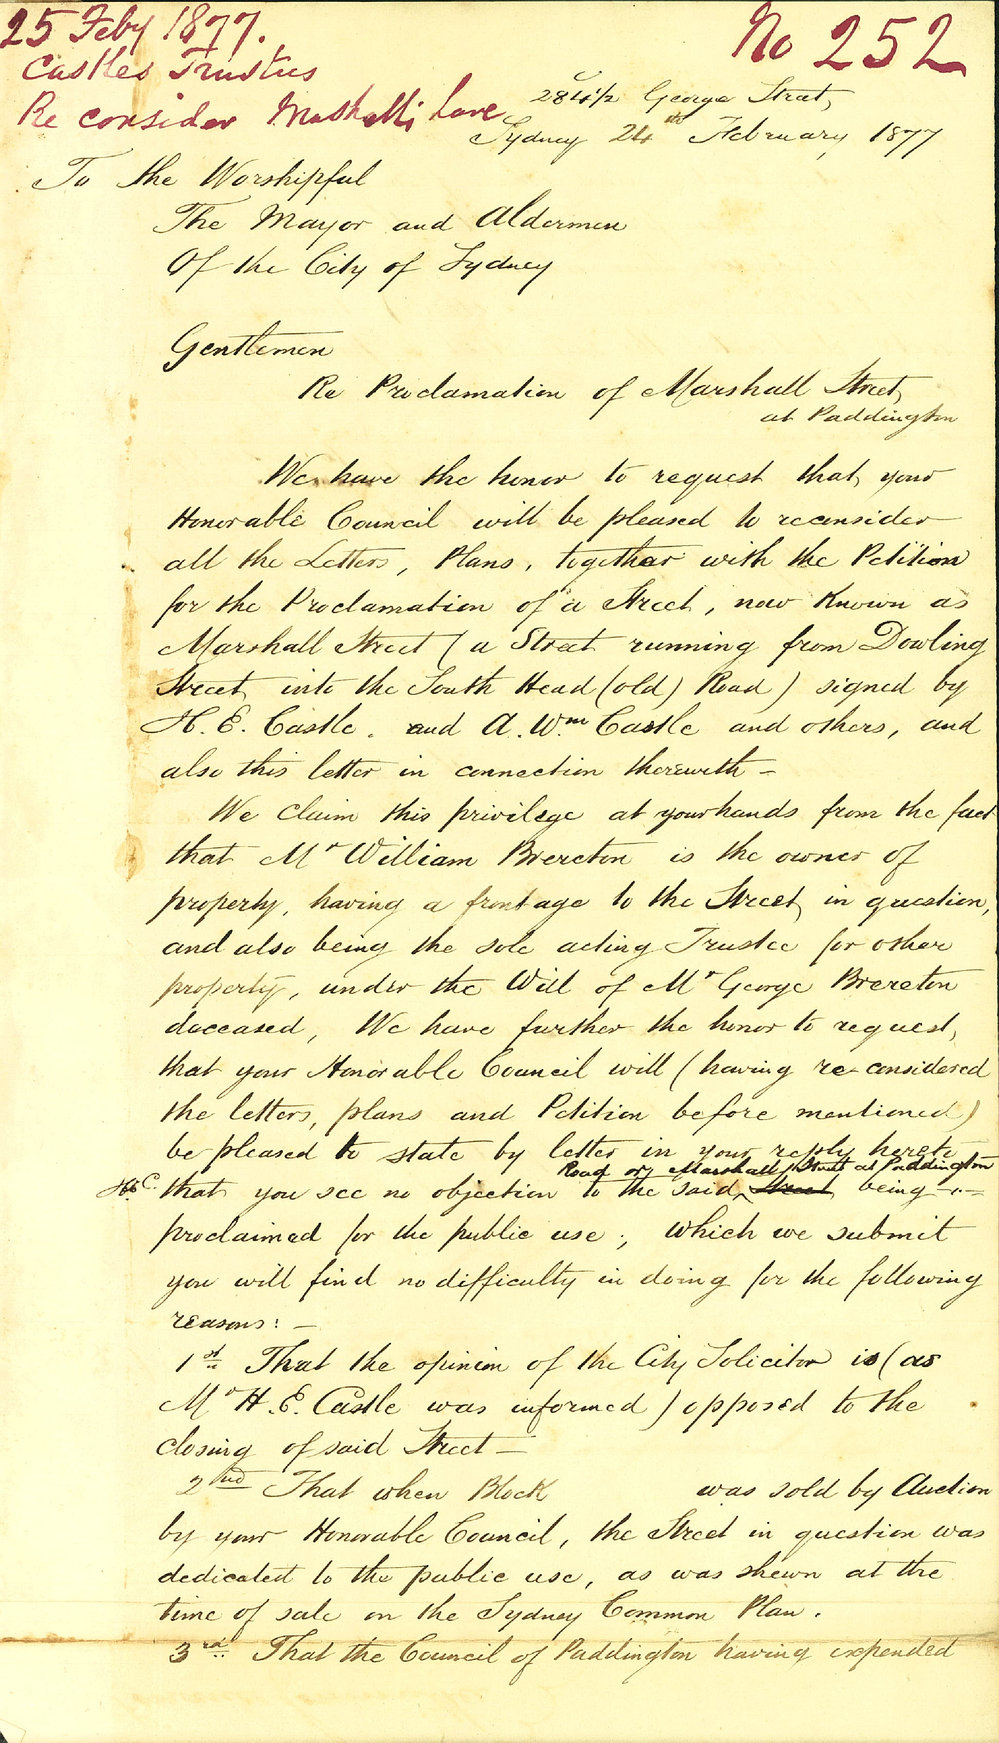 25 Feby 1877.
No 252
Castles Trustees
Re consider Marshalls Lane
284 1/2 George Street,
Sydney 24th February 1877
To the Worshipful
The Mayor and Aldermen
Of the City of Sydney
Gentlemen
Re Proclamation of Marshall Street,
at Paddington
We have the honor to request that, your
Honorable Council will be pleased to reconsider
all the Letters, Plans, together with the Petition
for the Proclamation of a Street, now known as
Marshall Street (a Street running from Dowling
Street, into the South Head (old) Road) signed by
H. E. Castle. and A. Wm Castle and others, and
also this letter in connection therewith –
We claim this privilege at your hands from the fact
that Mr William Brereton is the owner of
property, having a frontage to the Street, in question,
and also being the sole acting Trustee for other
property, under the Will of Mr George Brereton
deceased, We have further the honor to request,
that your Honorable Council will (having re-considered
the letters, plans and Petition before mentioned)
be pleased to state by letter in your reply hereto
Road or Marshall Street at Paddington
that, you see no objection to the said Street being
proclaimed for the public use; which we submit
you will find no difficulty in doing for the following
reasons: –
1st That the opinion of the City Solicitor is (as
Mr H. E. Castle was informed) opposed to the
closing of said Street –
2nd That when Block was sold by Auction
by your Honorable Council, the Street in question was
dedicated to the public use, as was shewn at the
time of sale on the Sydney Common Plan.
3rd That the Council of Paddington having expended